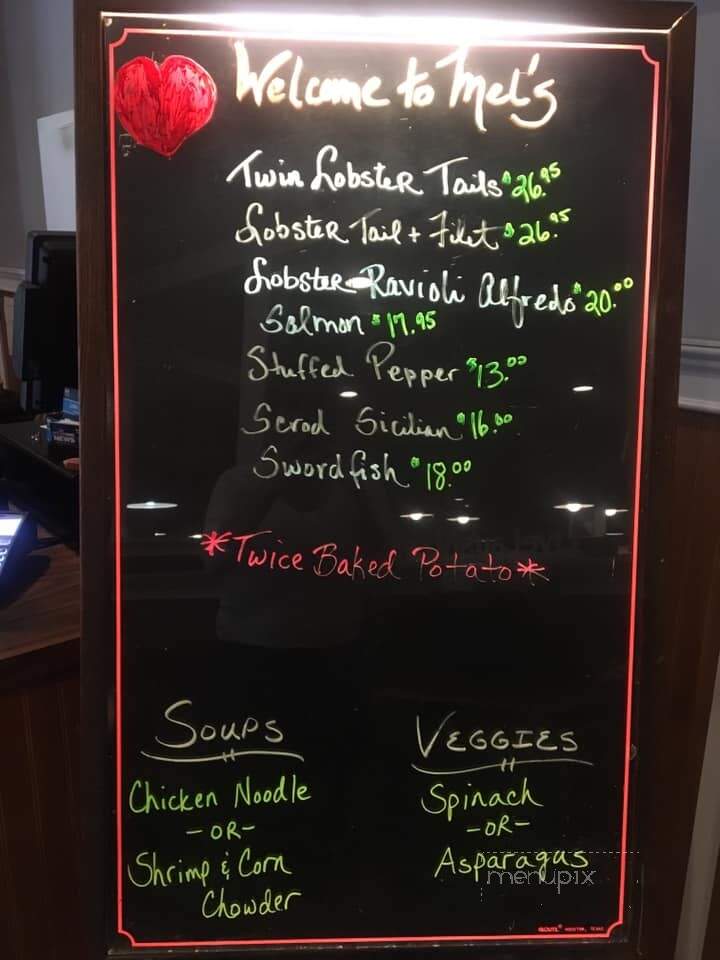 Welcome to Mel's
Twin Lobster Tails $26.95
Lobster Tail + Filet $26.95
Lobster Ravioli Alfredo $20.00
Salmon $17.95
Stuffed Pepper $13.00
Scrod Sicilian $16.00
Swordfish $18.00
*Twice Baked Potato*
Soups
Chicken Noodle
-OR-
Shrimp & Corn
Chowder
Veggies
Spinach
-OR-
Asparagus
menupix
HOUSTON, TEXAS
NEWS